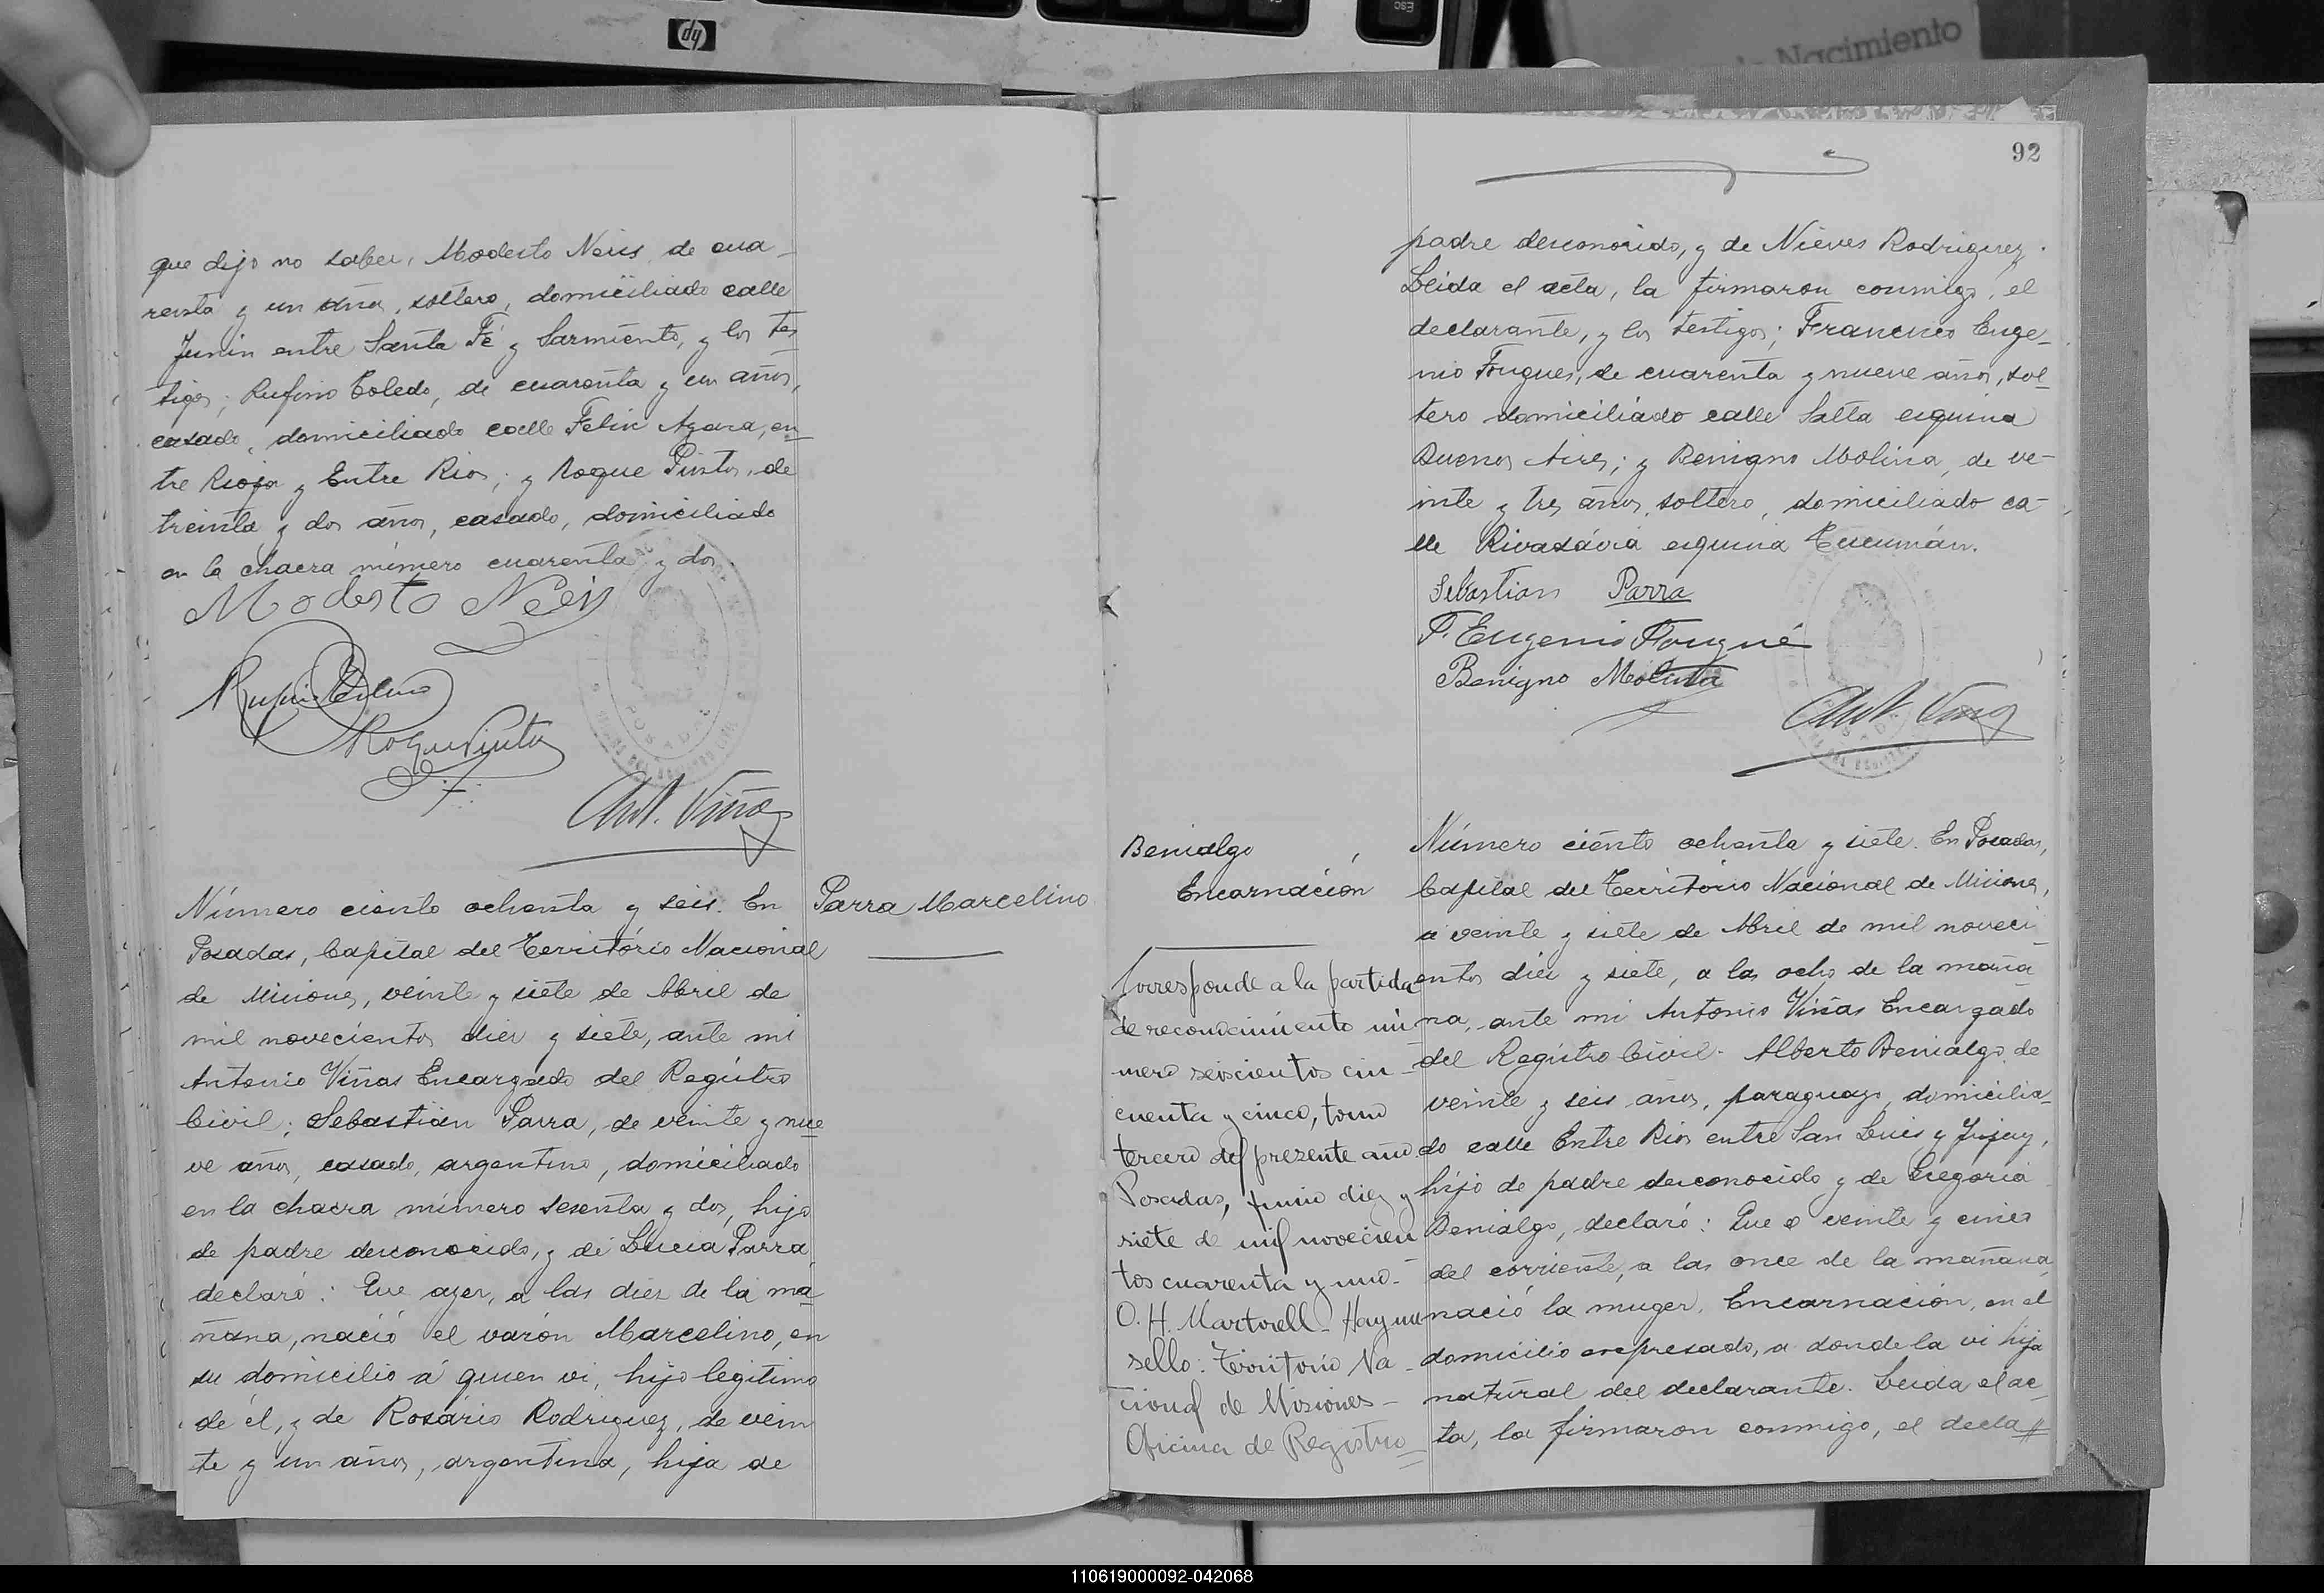 hp
ESC
Nacimiento
que dijo no saber, Modesto Neis de cua-
renta y un años, soltero, domiciliado calle
Junin entre Santa Fé y Sarmiento, y los tes
tigos; Rufino Toledo, de cuarenta y un años,
casado, domiciliado calle Felix Azara, en
tre Rioja y Entre Rios; y Roque Pintos, de
treinta y dos años, casado, domiciliado
en la chacra número cuarenta y dos.
Modesto Neis
Roque Pintos
Ant. Viñas
Número ciento ochenta y seis. En
Posadas, Capital del Território Nacional
de Misiones, veinte y siete de Abril de
mil novecientos diez y siete, ante mi
Antonio Viñas Encargado del Registro
Civil; Sebastián Parra, de veinte y nue
ve años, casado, argentino, domiciliado
en la chacra número sesenta y dos, hijo
de padre desconocido, y de Lucia Parra,
declaró: Que ayer, a las diez de la ma
ñana, nació el varón Marcelino, en
su domicilio á quien vi, hijo legitimo
de él, y de Rosário Rodriguez, de vein
te y un años, argentina, hija de
Parra Marcelino
92
padre desconocido, y de Nieves Rodriguez.
Leida el acta, la firmaron conmigo, el
declarante, y los testigos; Francisco Euge-
nio Fougues, de cuarenta y nueve años, sol-
tero domiciliado calle Salta esquina
Buenos Aires; y Benigno Molina, de ve-
inte y tres años, soltero, domiciliado ca-
lle Rivadávia esquina Tucumán.
Sebastian Parra
F. Eugenio Fougué
Benigno Molina
Ant. Viñas
Benialgo
Encarnación
Corresponde a la partida
de reconocimiento nú
mero seiscientos cin-
cuenta y cinco, tomo
tercero del presente año.
Posadas, junio diez y
siete de mil novecien
tos cuarenta y uno.-
O. H. Martorell-
sello: Territorio Na-
cional de Misiones-
Oficina de Registro
Número ciento ochenta y siete. En Posadas,
Capital del Território Nacional de Misiones,
a veinte y siete de Abril de mil noveci
entos diez y siete, a las ocho de la maña
na, ante mi Antonio Viñas Encargado
del Registro Civil. Alberto Benialgo, de
veinte y seis años, paraguayo, domicilia-
do calle Entre Rios entre San Luis y Jujuy,
hijo de padre desconocido y de Gregoria
Benialgo, declaró: Que a veinte y cinco
del corriente, a las once de la mañana,
nació la muger, Encarnación, en el
domicilio expresado, a donde la vi hija
natural del declarante. Leida el ac-
ta, la firmaron conmigo, el decla//
110619000092-042068